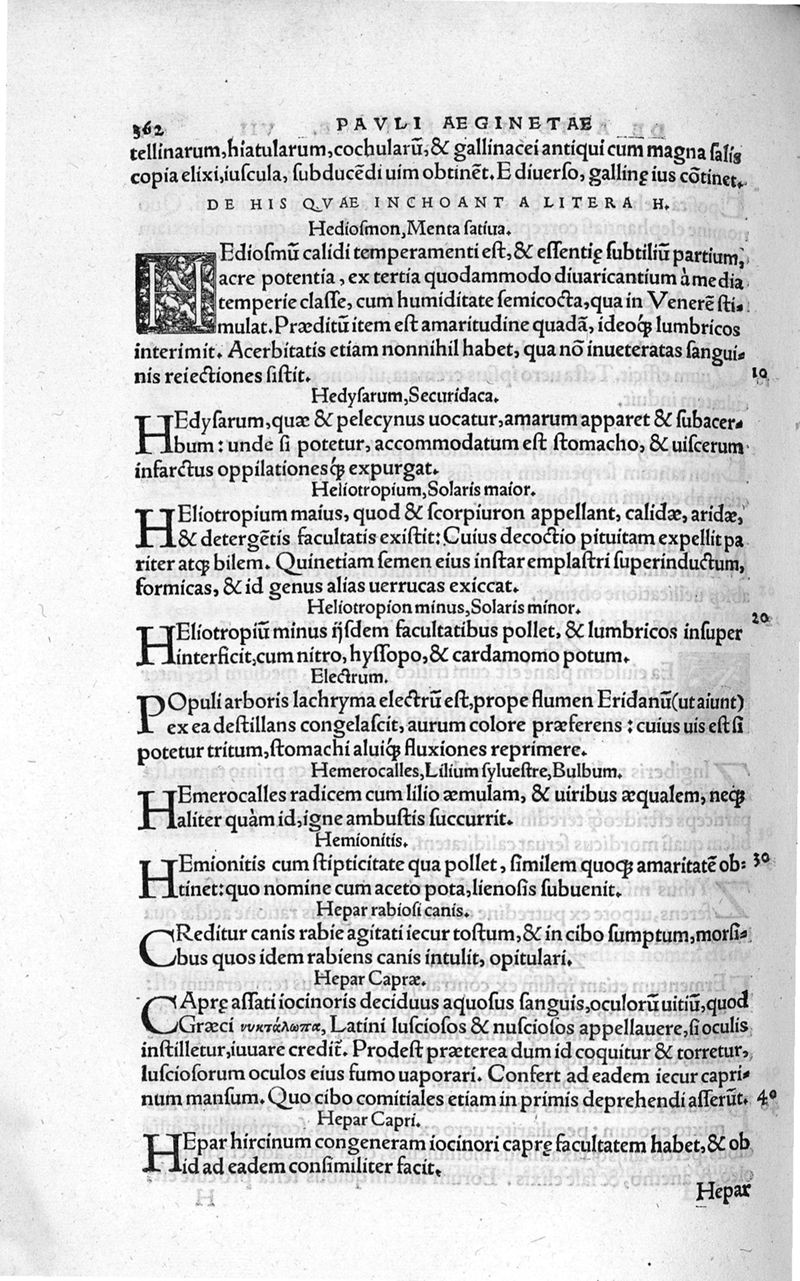 362 PAVLI AEGINETAE
tellinarum, hiatularum, cochularū, & gallinacei antiqui cum magna salis
copia elixi, iuscula, subducēdi uim obtinēt. E diuerso, gallinę ius cōtinet.
DE HIS QVAE INCHOANT A LITERA H.
Hediosmon, Menta satiua.
HEdiosmū calidi temperamenti est, & essentię subtiliū partium,
acre potentia, ex tertia quodammodo diuaricantium à media
temperie classe, cum humiditate semicocta, qua in Venerē sti-
mulat. Præditū item est amaritudine quadā, ideoq́; lumbricos
interimit. Acerbitatis etiam nonnihil habet, qua nō inueteratas sangui-
nis reiectiones sistit. 10
Hedysarum, Securidaca.
HEdysarum, quæ & pelecynus uocatur, amarum apparet & subacer-
bum: unde si potetur, accommodatum est stomacho, & uiscerum
infarctus oppilationesq́; expurgat.
Heliotropium, Solaris maior.
HEliotropium maius, quod & scorpiuron appellant, calidæ, aridæ,
& detergētis facultatis existit: Cuius decoctio pituitam expellit pa
riter atq; bilem. Quinetiam semen eius instar emplastri superinductum,
formicas, & id genus alias uerrucas exiccat.
Heliotropion minus, Solaris minor.
HEliotropiū minus ijsdem facultatibus pollet, & lumbricos insuper 20
interficit, cum nitro, hyssopo, & cardamomo potum.
Electrum.
POpuli arboris lachryma electrū est, prope flumen Eridanū (ut aiunt)
ex ea destillans congelascit, aurum colore præferens: cuius uis est si
potetur tritum, stomachi aluiq́; fluxiones reprimere.
Hemerocalles, Lilium syluestre, Bulbum.
HEmerocalles radicem cum lilio æmulam, & uiribus æqualem, neq;
aliter quàm id, igne ambustis succurrit.
Hemionitis.
HEmionitis cum stipticitate qua pollet, similem quoq; amaritatē ob- 30
tinet: quo nomine cum aceto pota, lienosis subuenit.
Hepar rabiosi canis.
CReditur canis rabie agitati iecur tostum, & in cibo sumptum, morsi-
bus quos idem rabiens canis intulit, opitulari.
Hepar Capræ.
CAprę assati iocinoris deciduus aquosus sanguis, oculorū uitiū, quod
Græci νυκτάλωπα, Latini lusciosos & nusciosos appellauere, si oculis
instilletur, iuuare credit̄. Prodest præterea dum id coquitur & torretur,
lusciosorum oculos eius fumo uaporari. Confert ad eadem iecur capri-
num mansum. Quo cibo comitiales etiam in primis deprehendi asserūt. 40
Hepar Capri.
HEpar hircinum congeneram iocinori caprę facultatem habet, & ob
id ad eadem consimiliter facit.
Hepar